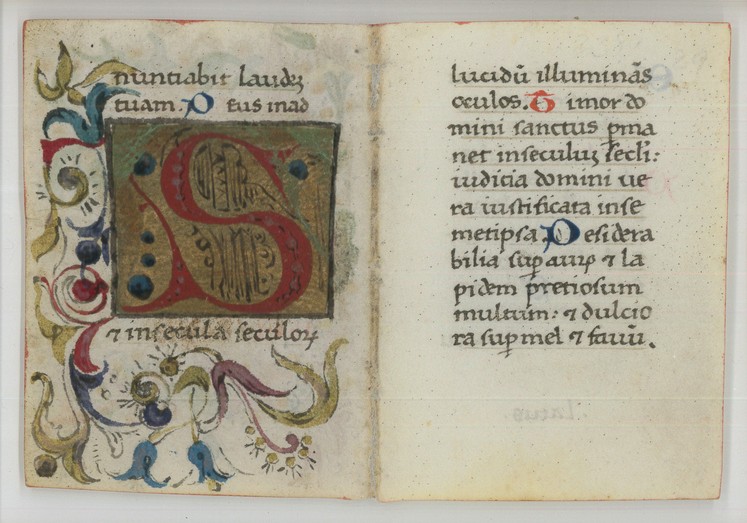 nuntiabit laudeꝫ
tuam. D eus inad
S
⁊ insecula seculoꝝ
lucidū illuminās
oculos. T imor do
mini sanctus ꝑma
net inseculuꝫ secli:
iudicia domini ue
ra iustificata inse
metipsa. D esidera
bilia suꝑ auꝝ ⁊ la
pidem pretiosum
multum: ⁊ dulcio
ra suꝑ mel ⁊ fauū.